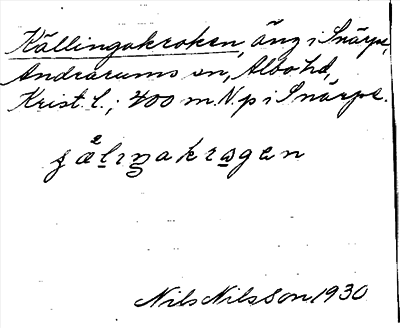 Källingakroken, äng i Snärpe,
Andrarums sn, Albo hd,
Krist. l.; 400 m. N. p i Snärpe.
Nils Nilsson 1930